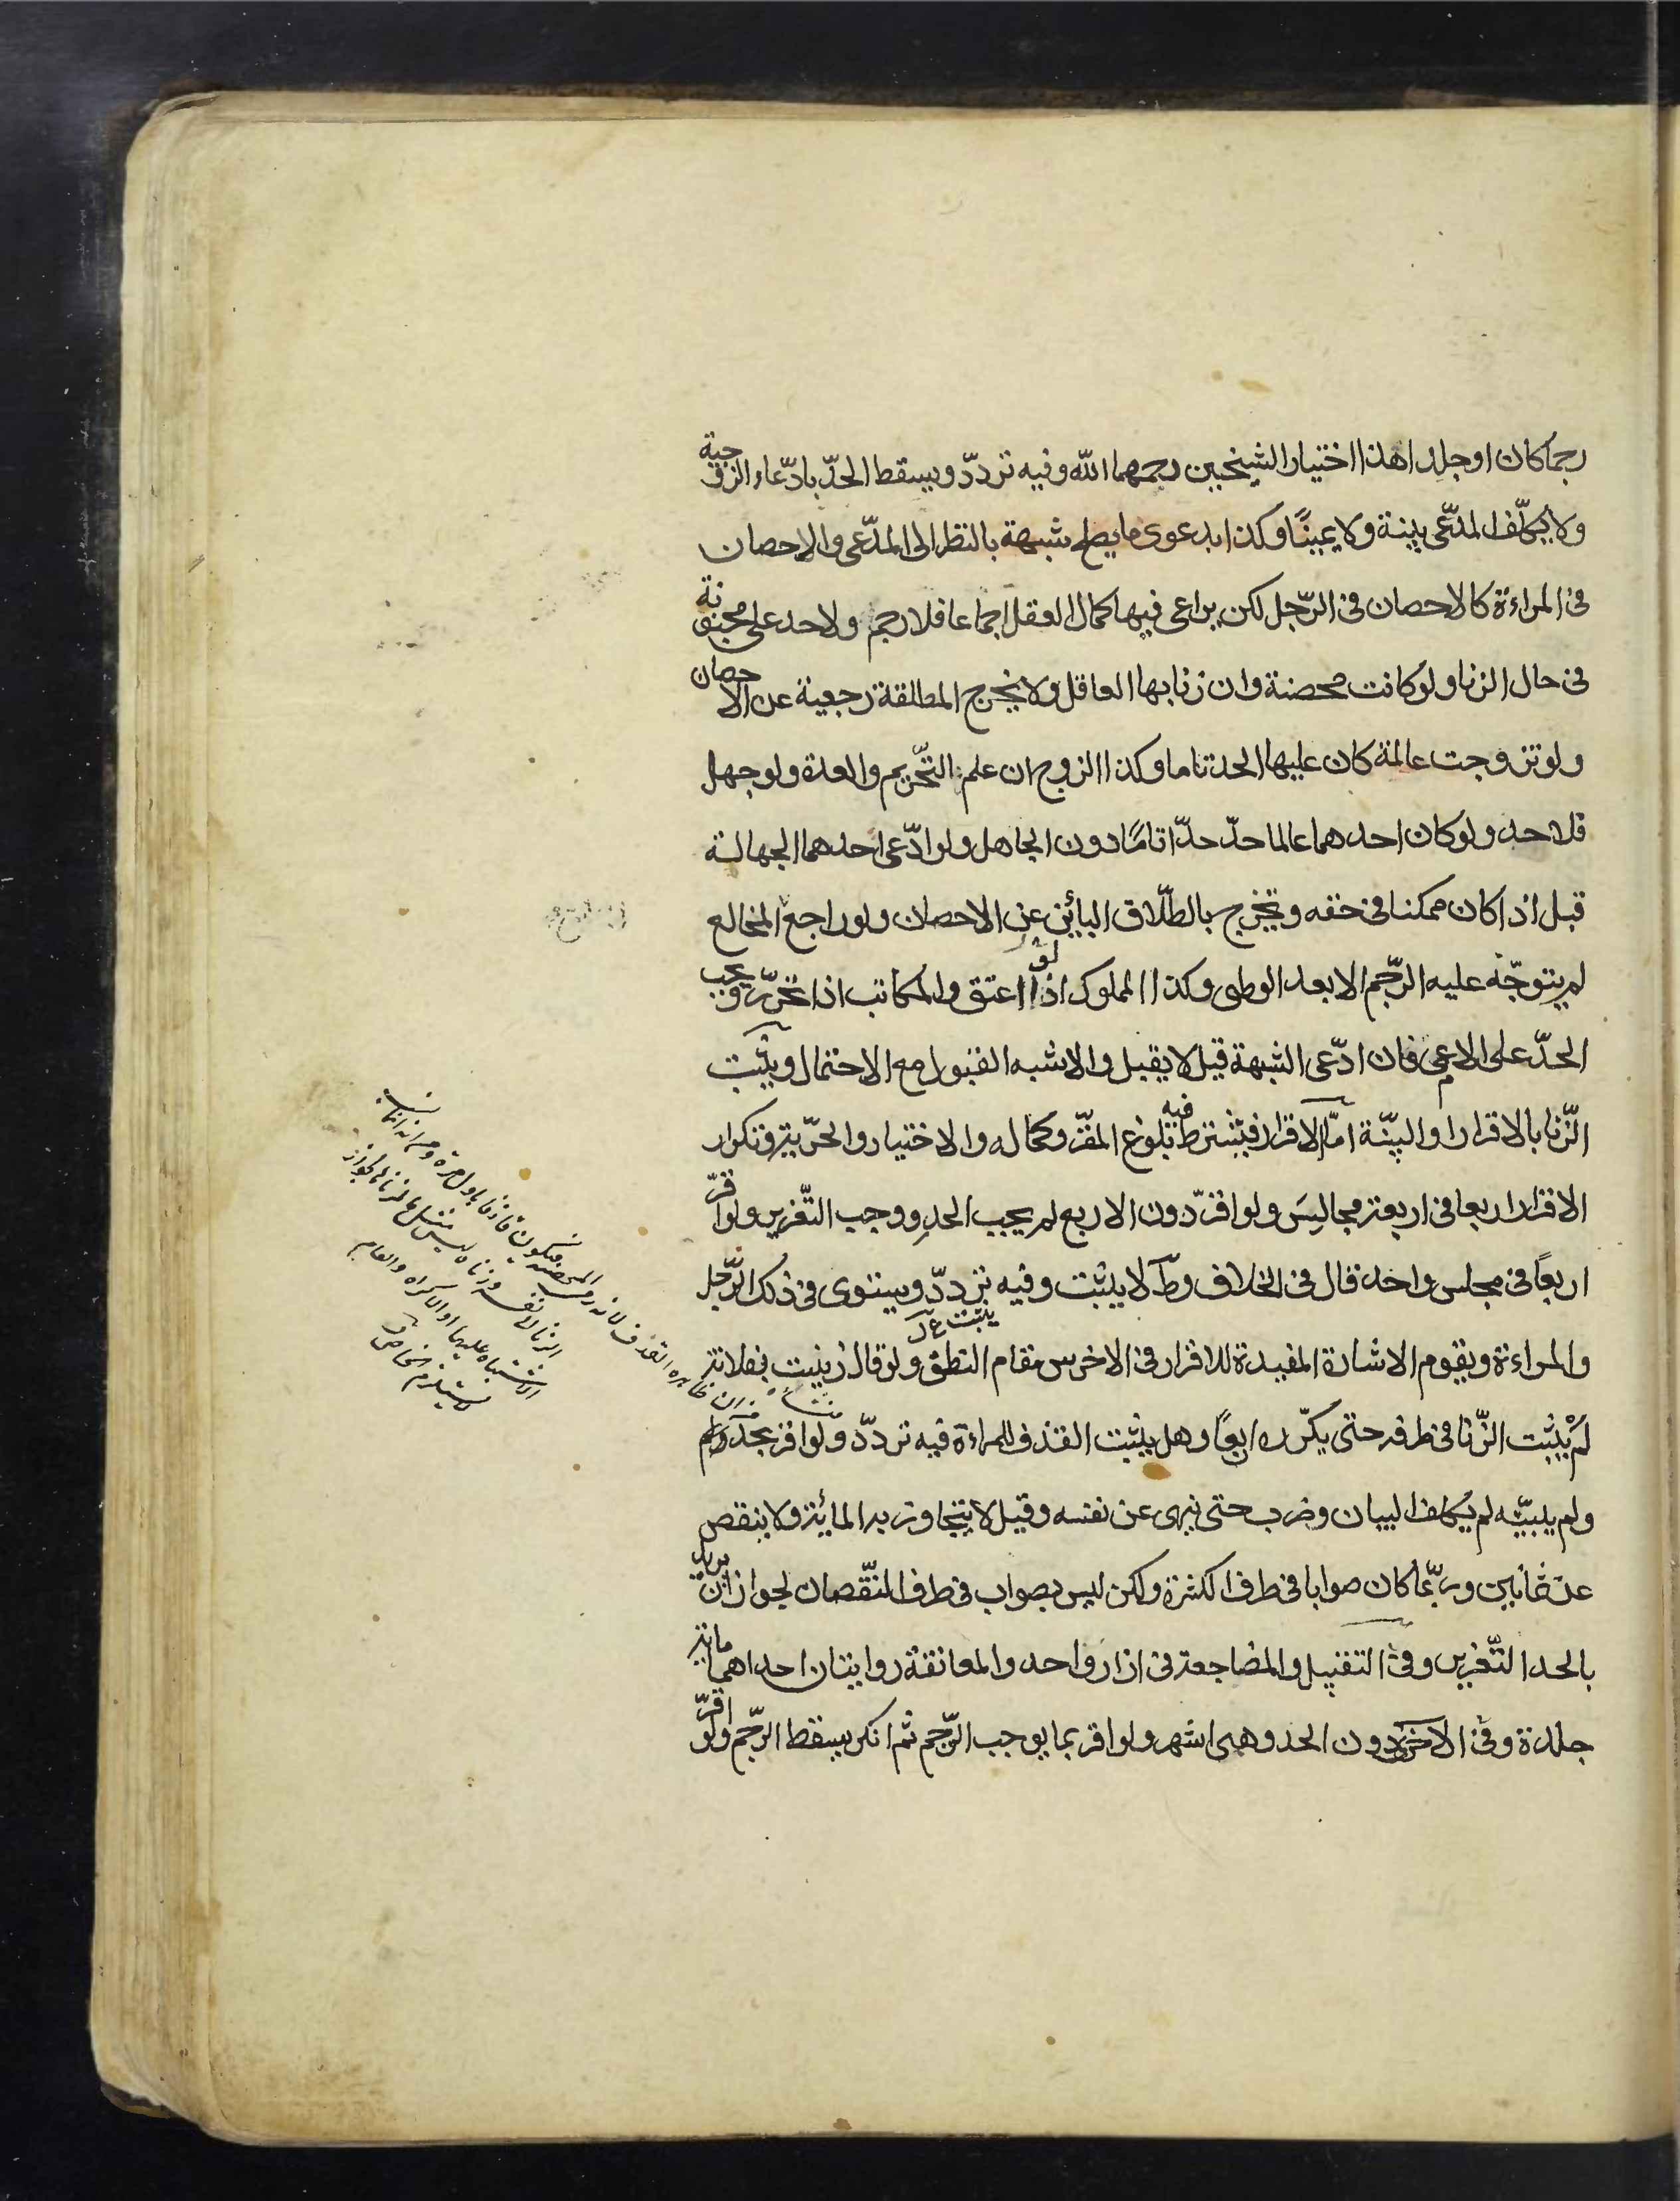 رجما كان او جلدا هذا اختيار الشيخين رحمهما الله وفيه تردّد ويسقط الحدّ بادّعاء الزوجية
ولا يكلّف المدّعى بينة ولا يمينًا وكذا بدعوى ما يصلح شبهة بالنظر الى المدّعى والاحصان
فى المراءة كالاحصان فى الرّجل لكن يراعى فيها كمال العقل اجماعا فلا رجم ولا حد على مجنونة
فى حال الزنا ولو كانت محصنة وان زنا بها العاقل ولا يخرج المطلقة رجعية عن الاحصان
ولو تزوجت عالمة كان عليها الحد تاما وكذا الزوج ان علم التّحريم والعدة ولو جهل
فلا حد ولو كان احدهما عالما حدّ حدّا تامًا دون الجاهل ولو ادّعى احدهما الجهالة
قبل اذا كان ممكنا فى حقه ويخرج بالطّلاق البائن عن الاحصان ولو راجع المخالع
لم يتوجّه عليه الرّجم الا بعد الوطى وكذا المملوك اذا لو اعتق والمكاتب اذا تحرّر ويجب
الحدّ على الاعمى فان ادّعى الشبهة قيل لا يقبل والاشبه القبول مع الاحتمال ويثبت
الزّنا بالاقرار او البيّنة امّا الاقرار فيشترط فيه بلوغ المقرّ وكماله والاختيار والحرّية وتكرار
الاقرار اربعا فى اربعة مجالِسَ ولو اقرّ دون الاربع لم يجب الحد ووجب التّعزير ولو اقرّ
اربعًا فى مجلس واحد قال فى الخلاف وط لا يثبت وفيه تردّد ويستوى فى ذلك الرّجل
والمراءة ويقوم الاشارة المفيدة للاقرار فى الاخرس مقام النطق ولو قال زنيت بفلانة
لمْ يثبت الزّنا فى طرفه حتى يكرّره اربعًا وهل يثبت القذف للمراءة فيه تردّد ولو اقر بحدّ
ولم يبيّنه لم يكلف البيان وضرب حتى ينهى عن نفسه وقيل لا يتجاوز به المائة ولا ينقص
عن ثمانين وربّما كان صوابا فى طرف الكثرة ولكن ليس بصواب فى طرف النّقصان لجواز ان يريد
بالحد التّعزير وفى التقبيل والمضاجعة فى ازار واحد والمعانقة روايتان احداهما مائة
جلدة وفى الاخرى دون الحد وهى اشهر ولو اقر بما يوجب الرّجم ثم انكر يسقط الرّجم ولو اقرّ